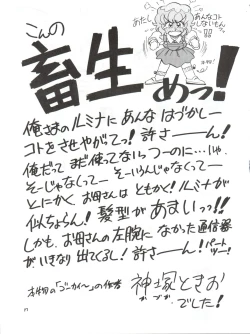 こんの
畜生めっ!
あたし
あんなコト
しないもん
!!
俺さまのルミナにあんなはづかしー
コトをさせやがってっ!許さーーん!
俺だってまだ使ってないっつーのに…じゃ、
そーじゃなくってー そーいんじゃなくってー
とにかくお母さんはともかく!ルミナが
似ちょらん!髪型があまいっっ!!
しかも、お母さんの左腕になかった通信器
が、いきなり出てくるし!許さーーん!パートツー!
本物の「ゴーカイ〜」の作者 神塚ときお
でした!